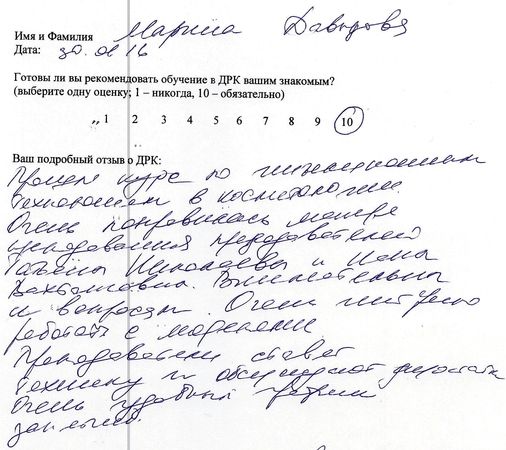 Имя и Фамилия Марина Давыдова
Дата: 30.01.16
Готовы ли вы рекомендовать обучение в ДРК вашим знакомым?
(выберите одну оценку; 1 – никогда, 10 – обязательно)
1 2 3 4 5 6 7 8 9 10
Ваш подробный отзыв о ДРК:
Прошла курс по инъекционным
технологиям в косметологии.
Очень понравилась манера
преподавания преподавателей
Татьяны Николаевы и Нины
Вахтанговна. Внимательны
к вопросам. Очень
работать с моделями
Преподаватели ставят
технику и обсуждают
Очень удобный график
занятий.